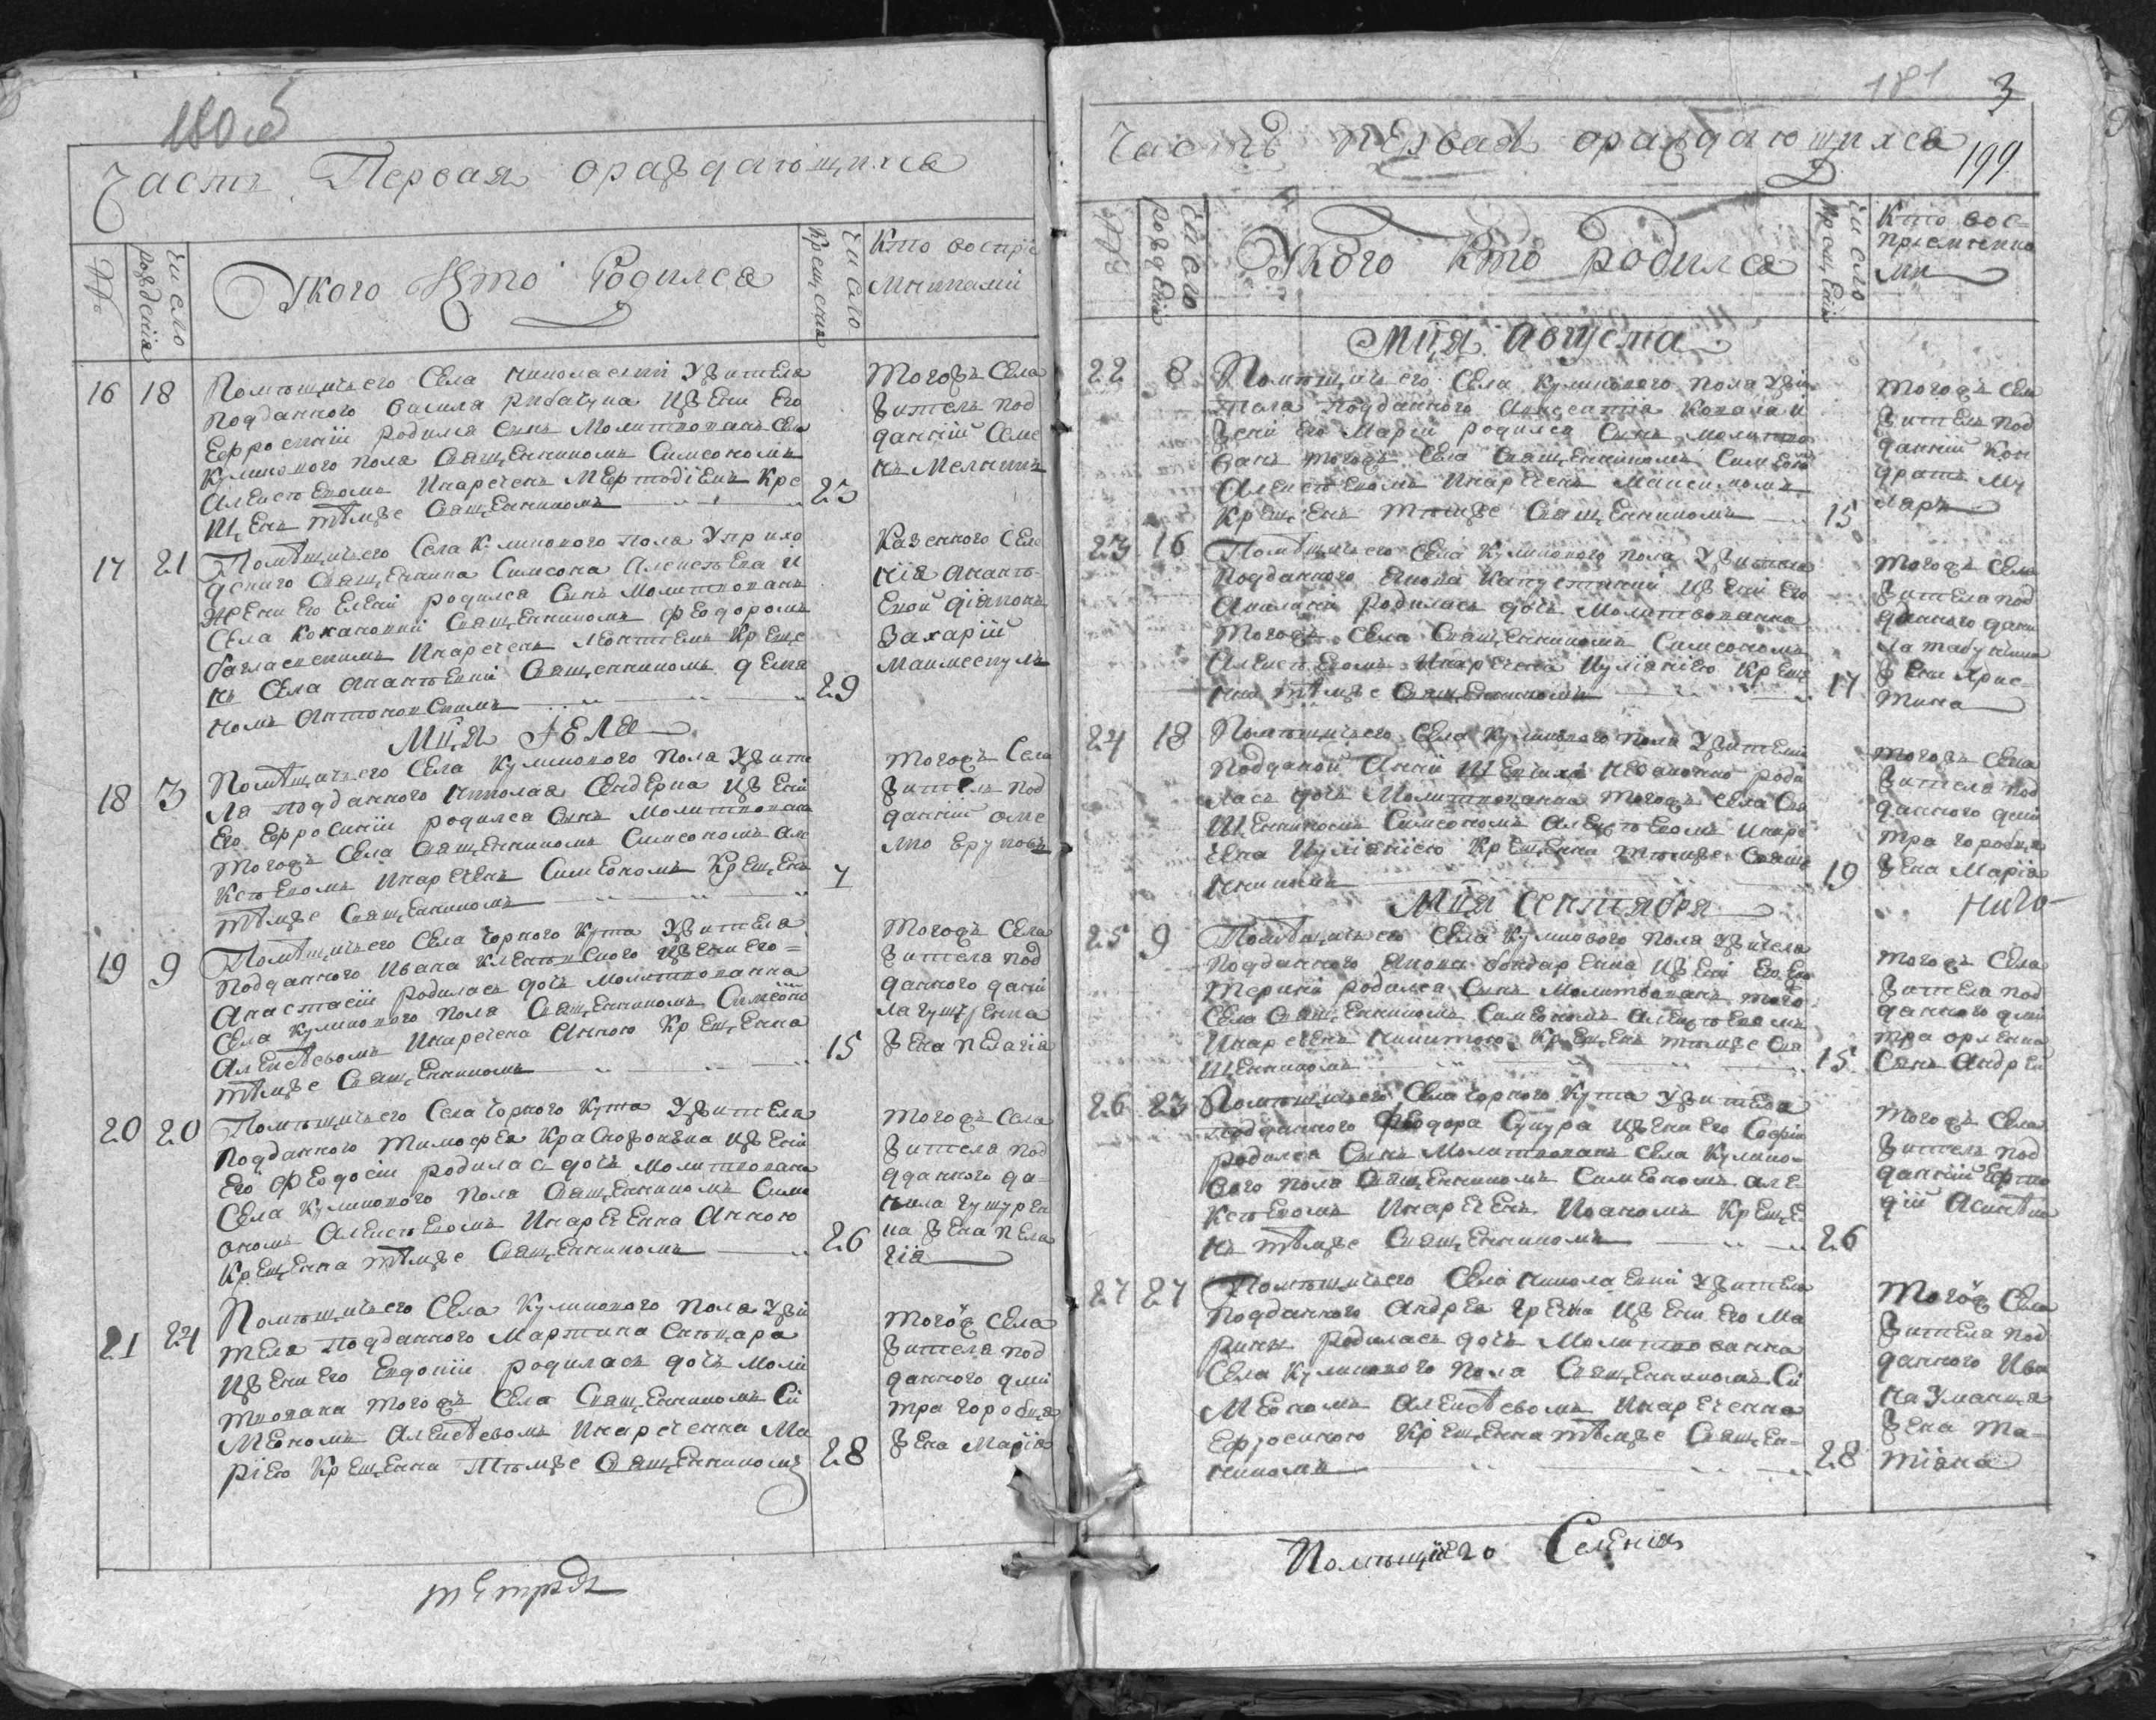 180 об
Часть Первая ораждающихся
№
Число рождения
Укого Кто Родился
Число Крещения
Кто восприемниками
16 18
Помѣщичьего Села Николаевки Ужителя
подданного Василя Рибалука ижени Его
Ефросинии родился Сынъ Молитвованъ Села
Куликового поля Священникомъ Симеономъ
Алексѣевомъ Инареченъ Мефтодіемъ Кре
щенъ тѣмже Священникомъ
23
Тогожъ Села
житель под
данній Семе
нъ Мелникъ
17 21
Помѣщичьего Села Куликового поля Уприхо
дскаго Священника Симеона Алексѣева и
жени Его Елени родился Сынъ Молитвованъ
Села Кохановки Священникомъ Феодоромъ
Инареченъ Леонтиемъ Креще
нъ Села Ананьевки Священникомъ
номъ Антоновскимъ
29
Казенного Селе
нія Ананъ
евой діяконъ
Захарій
Мця Іюля
18 3
Помѣщичьего Села Куликового поля Ужите
ля подданного Николая Сендерка ижени
Его Ефросинии родился Сынъ Молитвованъ
Тогожъ Села Священникомъ Симеономъ Але
ксѣевомъ Инареченъ Симеономъ Крещенъ
тѣмже Священникомъ
7
Тогожъ Села
житель под
данній оме
лко
19 9
Помѣщичьего Села Чорного Кута Ужителя
подданного Ивана ижени Его
Анастасіи родилась дочь Молитвованна
Села Куликового поля Священникомъ Симеоно
Алексѣевомъ Инаречена Анною Крещенна
тѣмже Священникомъ
15
Тогожъ Села
жителя под
данного дани
ла
жена пелагія
20 20
Помѣщичьего Села Чорного Кута Ужителя
подданного Тимофея ижени
Его Феодосіи родилась дочь Молитвована
Села Куликового поля Священникомъ Симе
ономъ Алексѣевомъ Инареченна Анною
Крещенна тѣмже Священникомъ
26
Тогожъ Села
жителя под
данного да-
нила Чучурен
ка жена пела
гія
21 24
Помѣщичьего Села Куликового поля Ужи
теля подданного Мартина
ижени Его Евдокіи родилась дочь Моли
твована Тогожъ Села Священникомъ Си
меономъ Алексѣевомъ Инареченна Ма
ріею Крещенна тѣмже Священникомъ
28
Тогожъ Села
жителя под
данного дми
тра горобца
жена Марія
181 3
199
Часть первая ораждающихся
№
Число рождения
Укого Кто родился
Число Крещения
Кто вос-
приемника
ми
Мця Августа
22 8
Помѣщичьего Села Куликового поля Ужи
теля подданного Коваля и
жени Его Маріи родился Сынъ молитво
ванъ тогожъ Села Священникомъ Симеоно
Алексѣевомъ Инареченъ Максимомъ
Крещенъ тѣмже Священникомъ
15
Тогожъ Села
житель под
данній Кон
дратъ Му
ляръ
23 16
Помѣщичьего Села Куликового поля Ужителя
подданного Якова Капустянки ижени Его
Акилини родилась дочь Молитвованна
Тогожъ Села Священникомъ Симеономъ
Алексѣевомъ Инаречена Иуліяніею Креще
нна тѣмже Священникомъ
17
Тогожъ Села
жителя под
данного дани
ла
жена Хрис
тина
24 18
Помѣщичьего Села Куликового поля Ужителки
подданой Анни роди
лась дочь Молитвованна тогожъ Села Свя
щенникомъ Симеономъ Алексѣевомъ Инаре
чена Иуліяніею Крещенна тѣмже Священ
никомъ
19
Тогожъ Села
жителя под
данного дми
тра горобца
жена Марія
Мця Септября
25 9
Помѣщичьего Села Куликового поля Ужителя
подданного Якова Бондаренка ижени Его Ека
терини родился Сынъ Молитвованъ того
Села Священникомъ Симеономъ Алексѣевомъ
Инареченъ Никитою Крещенъ тѣмже Свя
щенникомъ
15
Тогожъ Села
жителя под
данного дми
тра орленка
Сынъ Андрей
26 23
Помѣщичьего Села Чорного Кута Ужителя
подданного Феодора Сукура ижени Его Софіи
родился Сынъ Молитвованъ Села Кулико-
вого поля Священникомъ Симеономъ Але-
ксѣевомъ Инареченъ Иваномъ Креще
нъ тѣмже Священникомъ
26
Тогожъ Села
житель под
данній
27 27
Помѣщичьего Села Николаевки Ужителя
подданного Андрея Грека ижени Его Ма
рини родилась дочь Молитвованна
Села Куликового поля Священникомъ Си
меономъ Алексѣевомъ Инареченна
Ефросиною Крещенна тѣмже Священ-
никомъ
28
Тогожъ Села
жителя под
данного Ива
на Уманця
жена Та-
тіяна
Помѣщичего Селенія